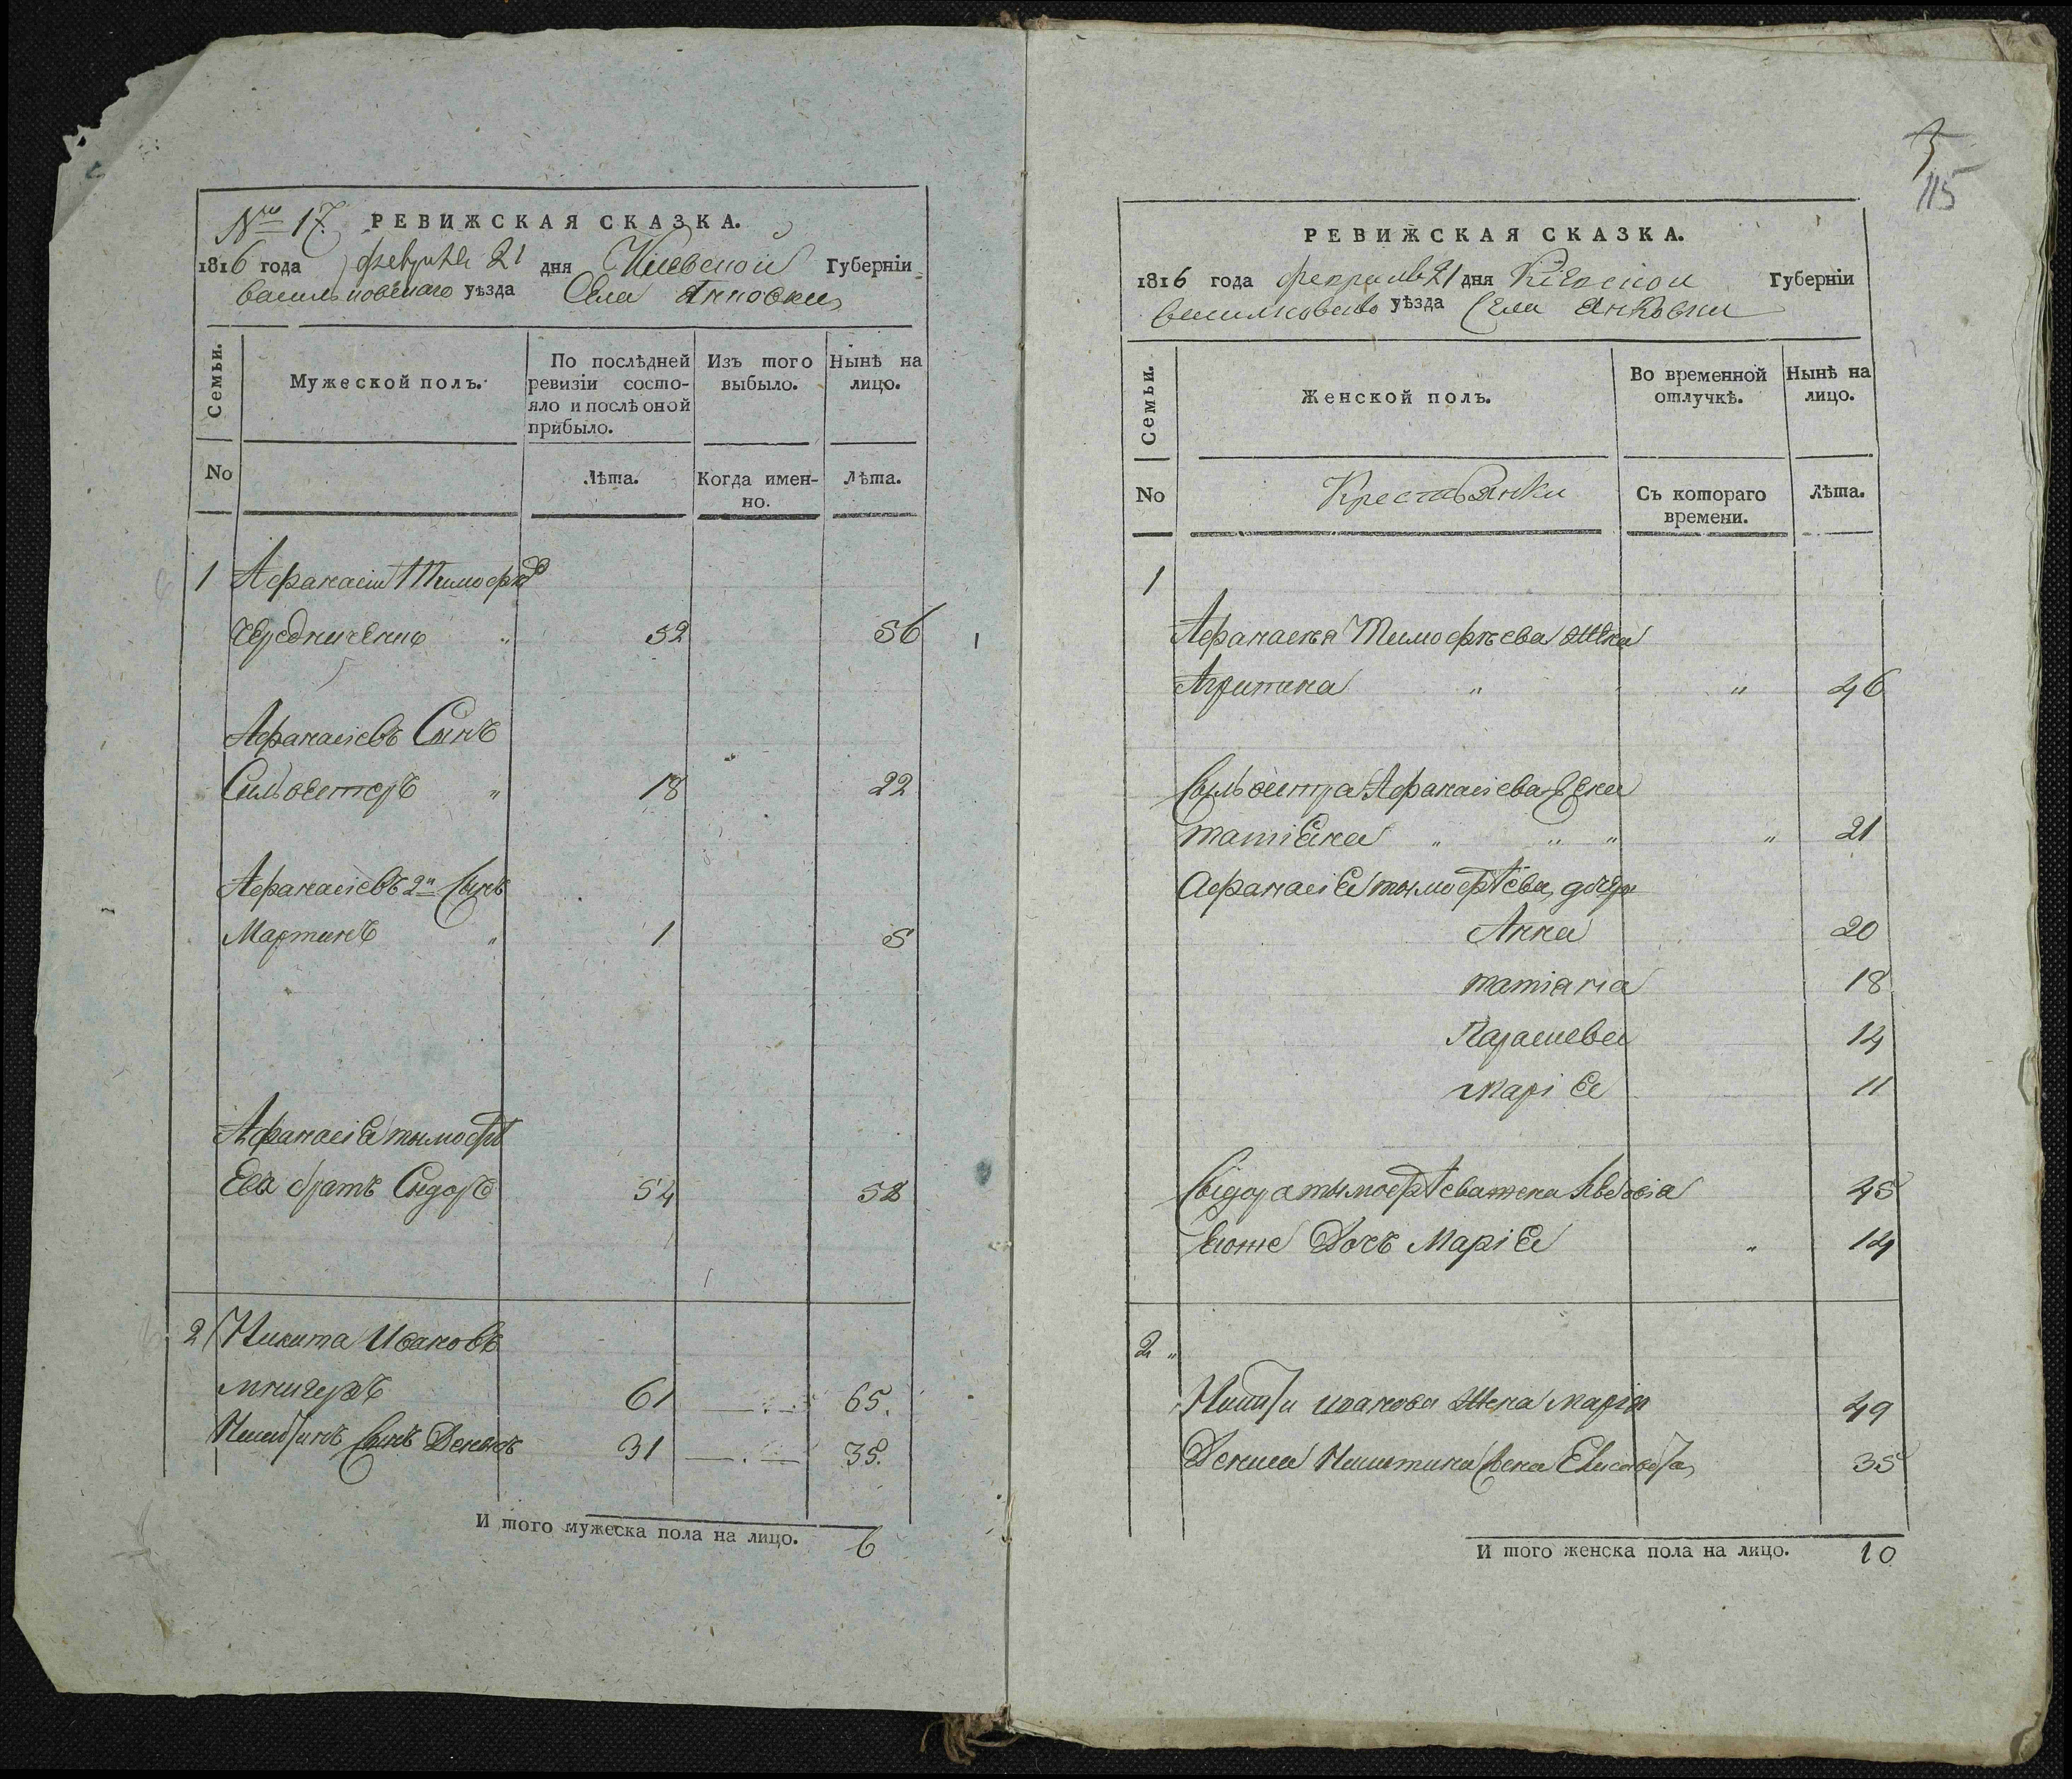 № 17. РЕВИЖСКАЯ СКАЗКА.
1816 года февраля 21 дня Кіевской Губерніи
васильковскаго уѣзда Села Янковки
Семьи.
Мужеской полъ.
По послѣдней ревизіи состо-
яло и послѣ оной
прибыло.
Изъ того
выбыло.
Нынѣ на
лицо.
No
Лѣта.
Когда имен-
но.
Лѣта.
1 Афанасіи Тимофѣ
Чередниченко " 52 56
Афанасіевъ Сынъ
Сильвестеръ " 18 22
Афанасіевъ 2й Сынъ
Мартинъ " 1 5
Афанасія тымофѣ
Ева братъ Сидоръ 54 58
2 Никита Ивановъ
61 65.
Никитинъ Сынъ Денисъ 31 35.
И того мужеска пола на лицо. 6
3
115
РЕВИЖСКАЯ СКАЗКА.
1816 года февраля 21 дня Кіевской Губерніи
василковскаго уѣзда Села Янковки
Семьи.
Женской полъ.
Во временной
отлучкѣ.
Нынѣ на
лицо.
No
Крестьянки
Съ котораго
времени.
Лѣта.
1
Афанасия Тимофѣева жена
Агрипина " " 46
Сильвестра Афанасіева жена
татіяна " " " " 21
Афанасія тымофѣева дочери
Анна 20
татіяна 18
Парасиева 14
марія 11
Сидора тымофѣева жена Авдотіа 45
Егоже Дочъ Марія " 14
2 "
Никиты иванова жена марія 49
Дениса Никитина жена Елисавета 35
И того женска пола на лицо. 10